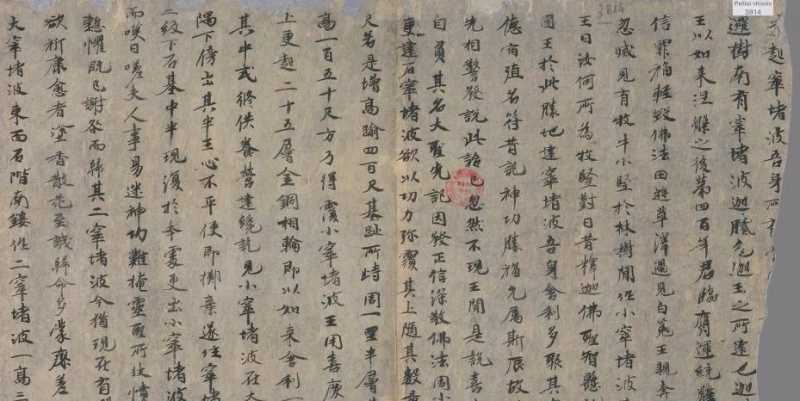 起窣堵波吾身所有
樹南有窣堵波迦膩色迦王之所建也迦
王以如來涅槃之後第四百年君臨膺運統贍
信罪福輕毀佛法田遊草澤遇見白菟王親奔
忽滅見有牧牛小竪於林樹間作小窣堵波
王曰汝何所為牧竪對曰昔釋迦佛聖智懸
國王於此勝地建窣堵波吾身舍利多聚其
德宿殖名符昔記神功勝福允属斯辰故
先相警發說此語已忽然不現王聞是說喜
自負其名大聖先記因發正信深敬佛法周小
更建石窣堵波欲以功力弥覆其上随其數
尺若是增高踰四百尺基趾所峙周一里半層
高一百五十尺方乃得覆小窣堵波王因喜慶
上更起二十五層金銅相輪即以如来舍利一
其中式修供養營建纔訖見小窣堵波在大
隅下傍出其半王心不平便即擲棄遂住窣堵
二級下石基中半現復於本處更出小窣堵波
而嘆曰嗟夫人事易迷神功難掩靈聖所扶憤
慙懼既已謝咎而歸其二窣堵波今猶現在有
欲祈康愈者塗香散花至誠歸命多蒙瘳差
大窣堵波東面石階南鏤作二窣堵波一高三
Pelliot chinois
3814